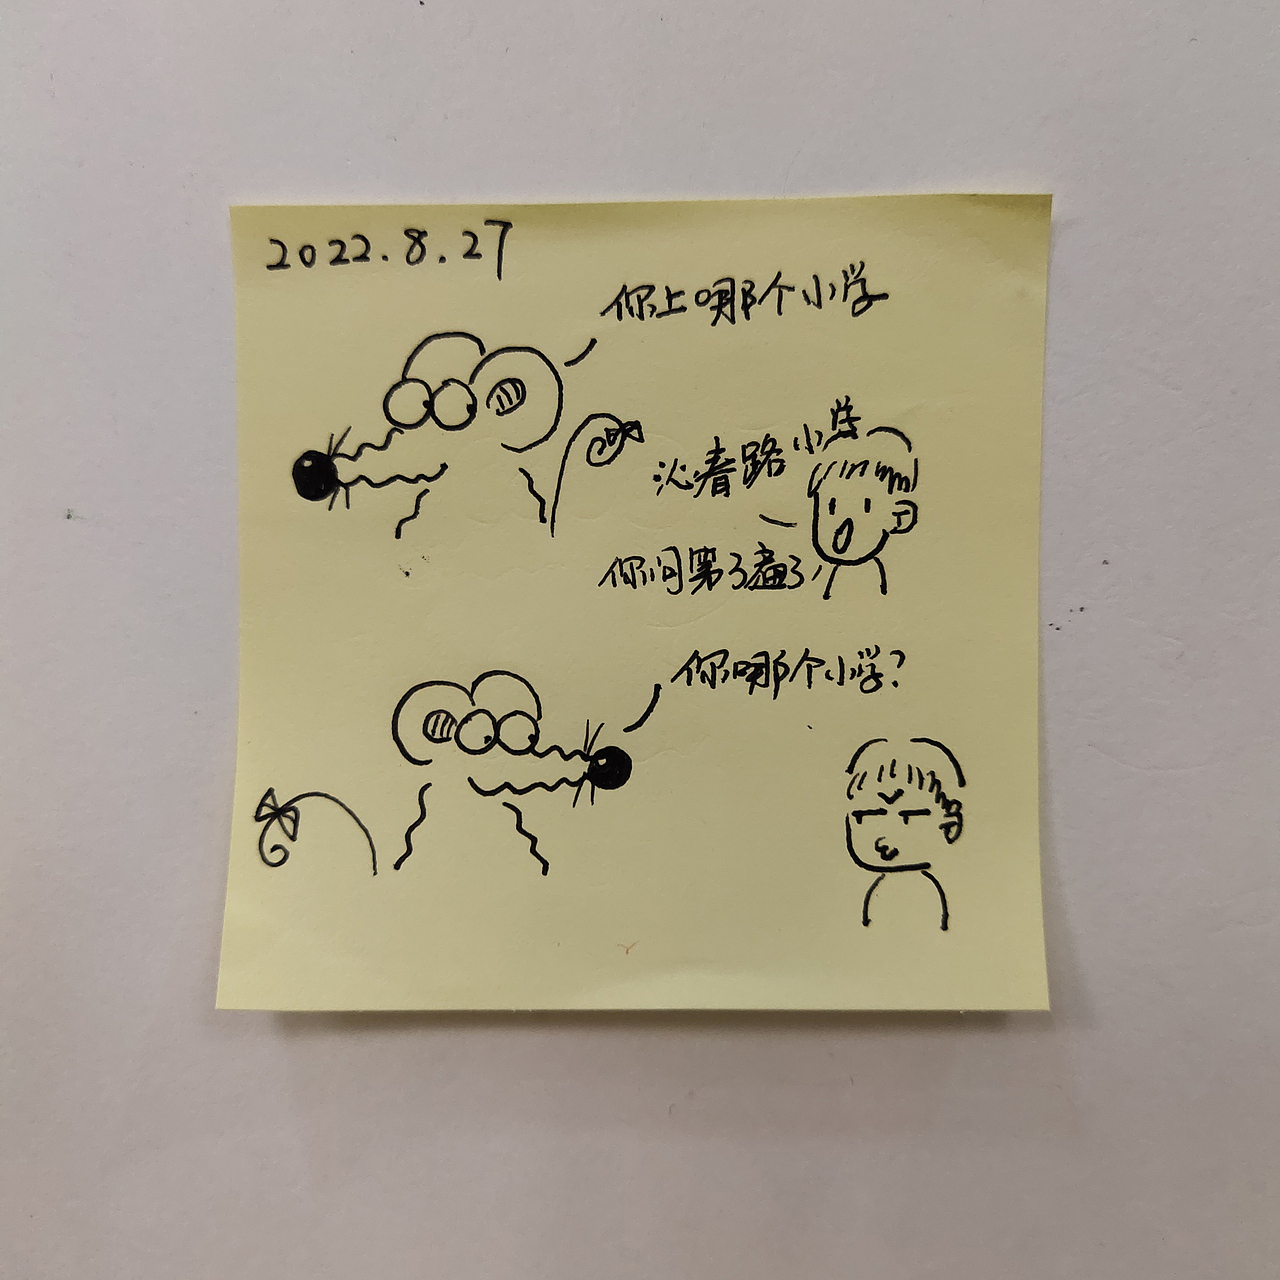 2022.8.27
你上哪个小学
沁春路小学
你问第3遍了
你哪个小学?